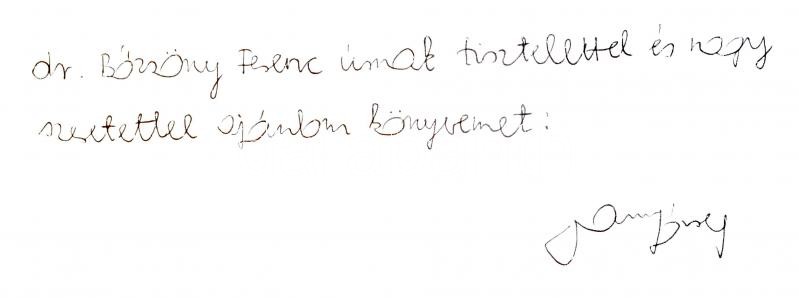 dr. Börzöny Ferenc úrnak tisztelettel és nagy
szeretettel ajánlom könyvemet: